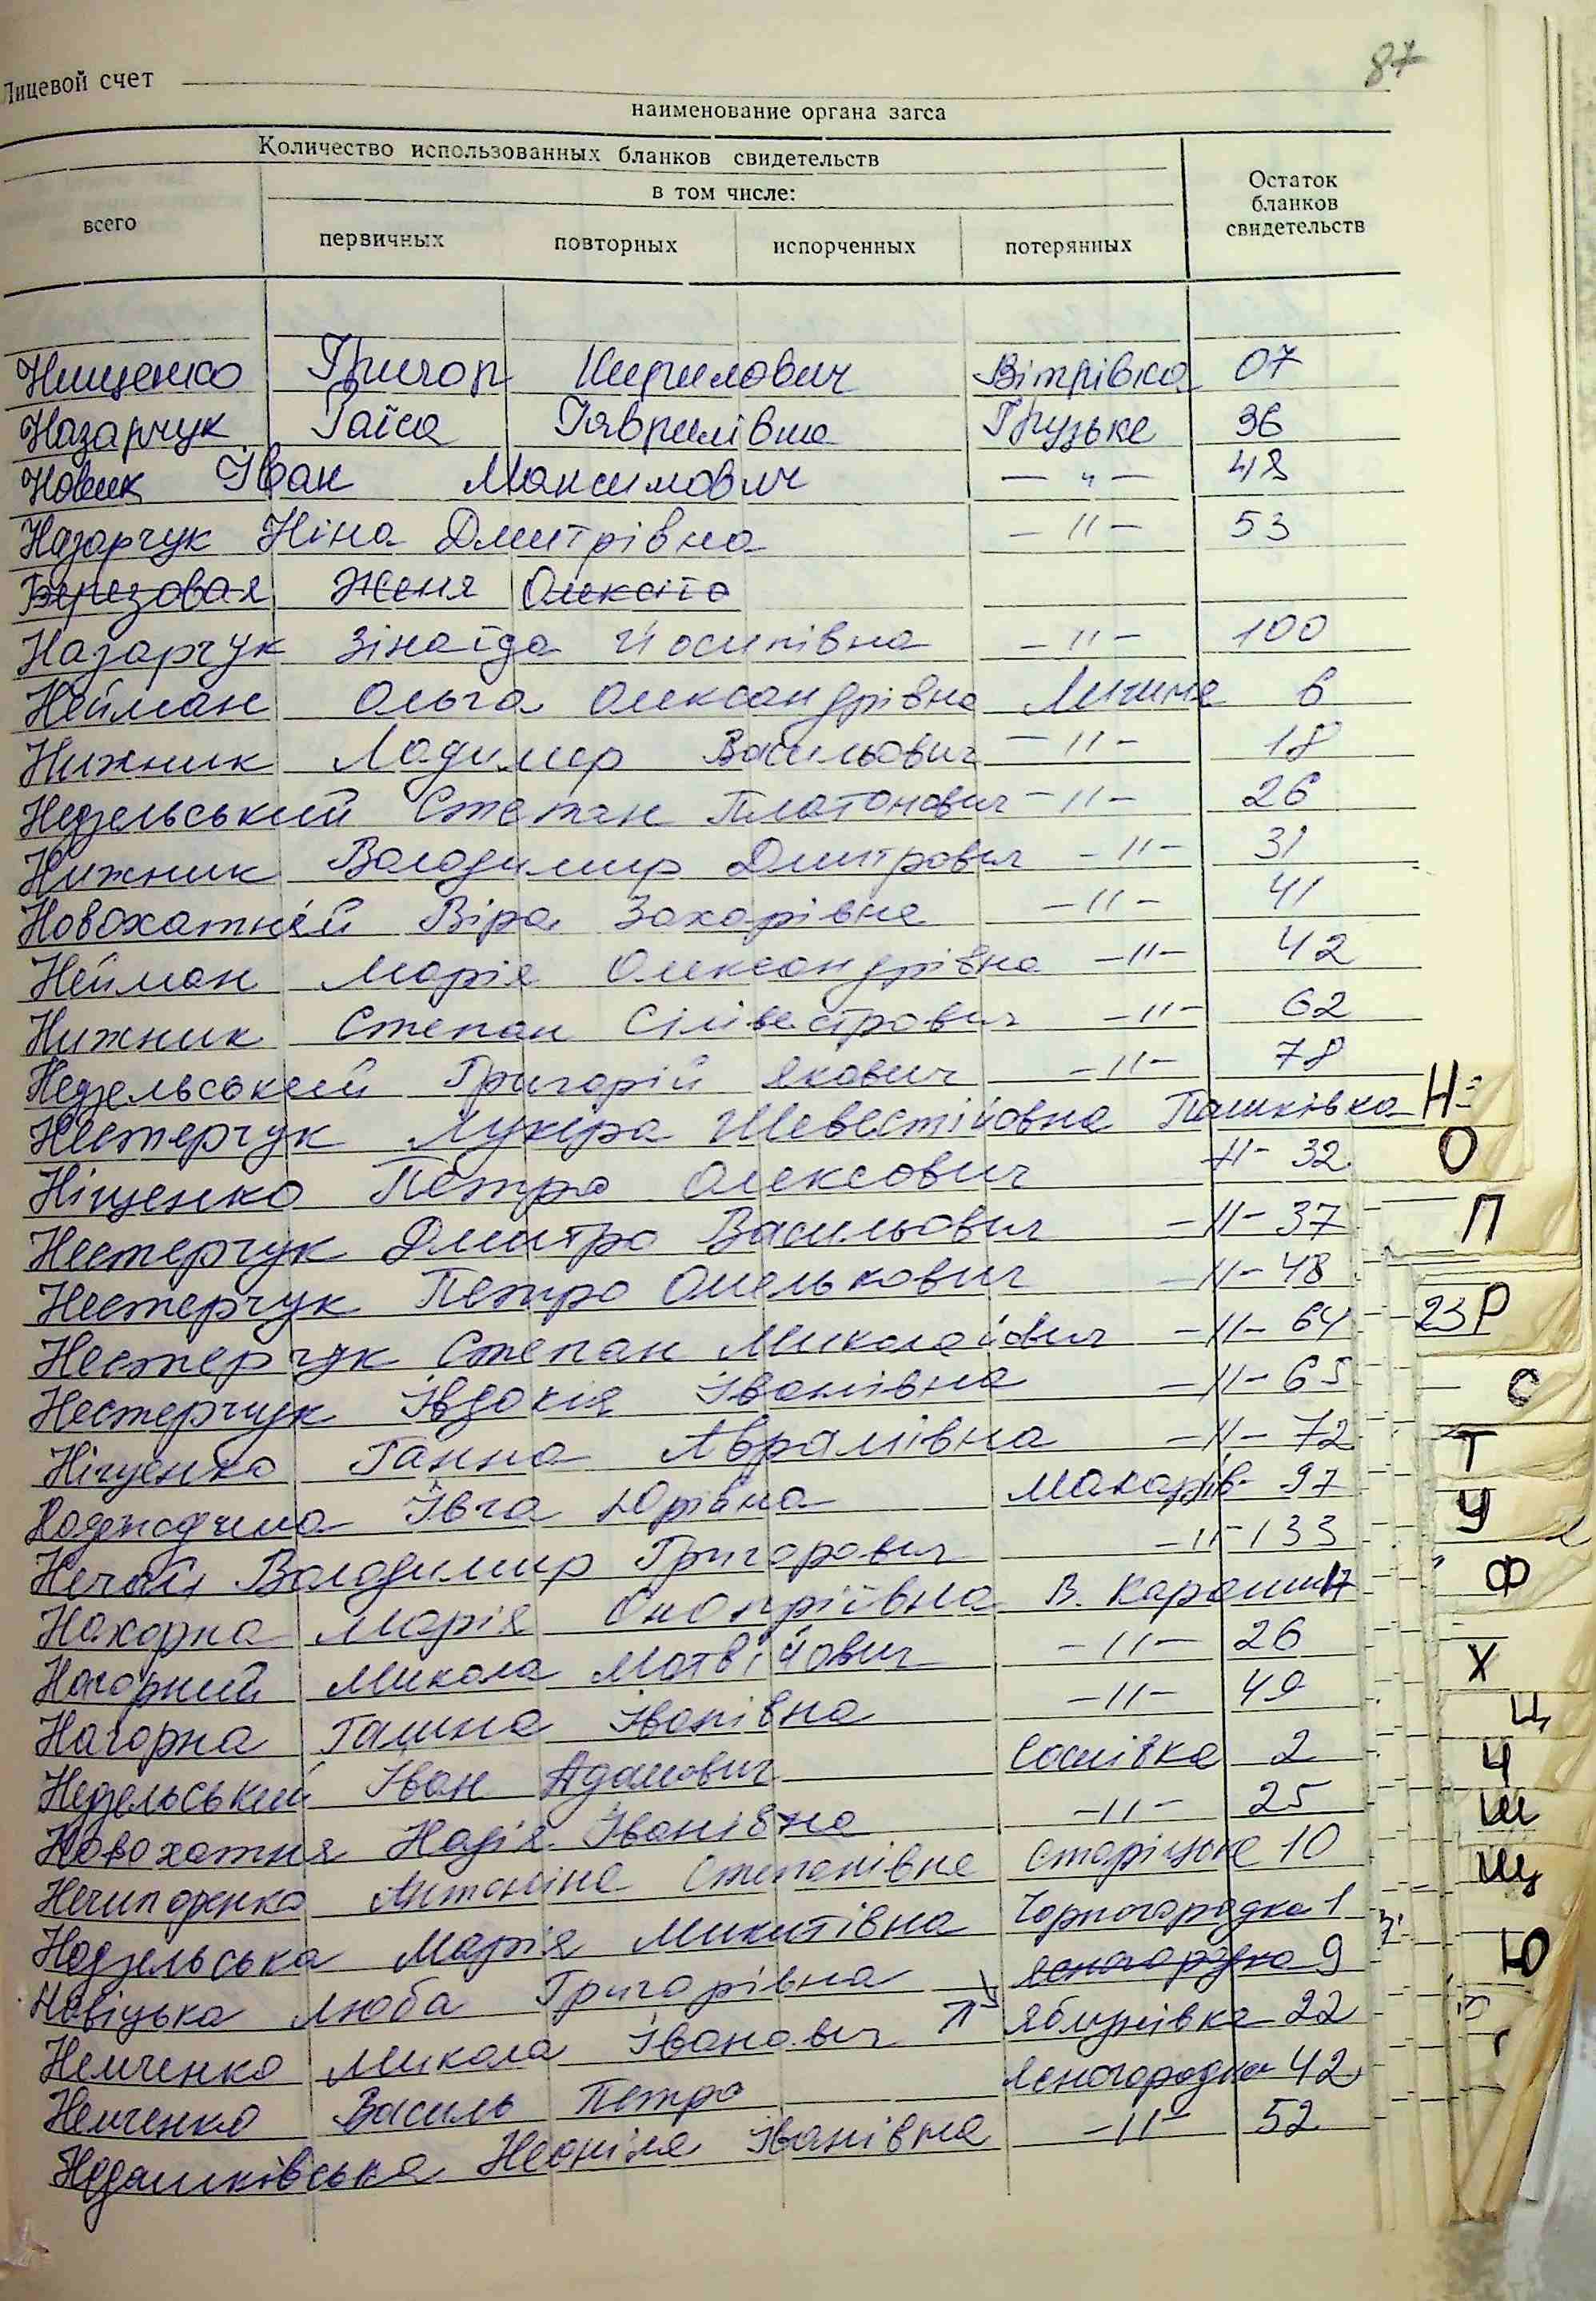 87
Лицевой счет
наименование органа загса
Количество использованных бланков свидетельств
в том числе:
Остаток бланков свидетельств
всего первичных повторных испорченных потерянных
Нищенко Григор Кирилович Вітрівка 07
Назарчук Раїса Гаврилівна Грузьке 36
Новик Іван Максимович — " — 48
Назарчук Ніна Дмитрівна — " — 53
Березовая Женя Олексіїв
Назарчук Зінаїда Йосипівна — " — 100
Нейман Ольга Олександрівна 6
Нижник Ладимер Васильович — " — 18
Недзельський Степан Платонович — " — 26
Нижник Володимир Дмитрович — " — 31
Новохатній Віра Захарівна — " — 41
Нейман Марія Олександрівна — " — 42
Нижник Степан Сілівестрович — " — 62
Недзельський Григорій Якович — " — 78
Нестерчук Лукера Пашківка 23
Ніщенко Петро Олексович — " — 32
Нестерчук Дмитро Васильович — " — 37
Нестерчук Петро Омелькович — " — 48
Нестерчук Степан Миколайович — " — 64
Нестерчук Івдокія Іванівна — " — 65
Ніщенко Ганна Аврамівна — " — 72
Івга Юрівна Макарів 97
Нечай Володимир Григорович — " — 133
Нахорна Марія Онопріївна В. Карашин 17
Нагорний Микола Матвійович — " — 26
Нагорна Галина Іванівна — " — 49
Недзельський Іван Адамович Соснівка 2
Новохатня Надія Іванівна — " — 25
Нечипоренко Антоніна Степанівна 10
Недзельська Марія Микитівна Чорногородка 1
Новіцька Люба Григорівна Ясногородка 9
Немченко Микола Іванович Яблунівка 22
Немченко Василь Петро Ясногородка 42
Недашківська Неоніля Іванівна — " — 52
Н
О
П
Р
С
Т
У
Ф
Х
Ц
Ч
Ш
Щ
Ю